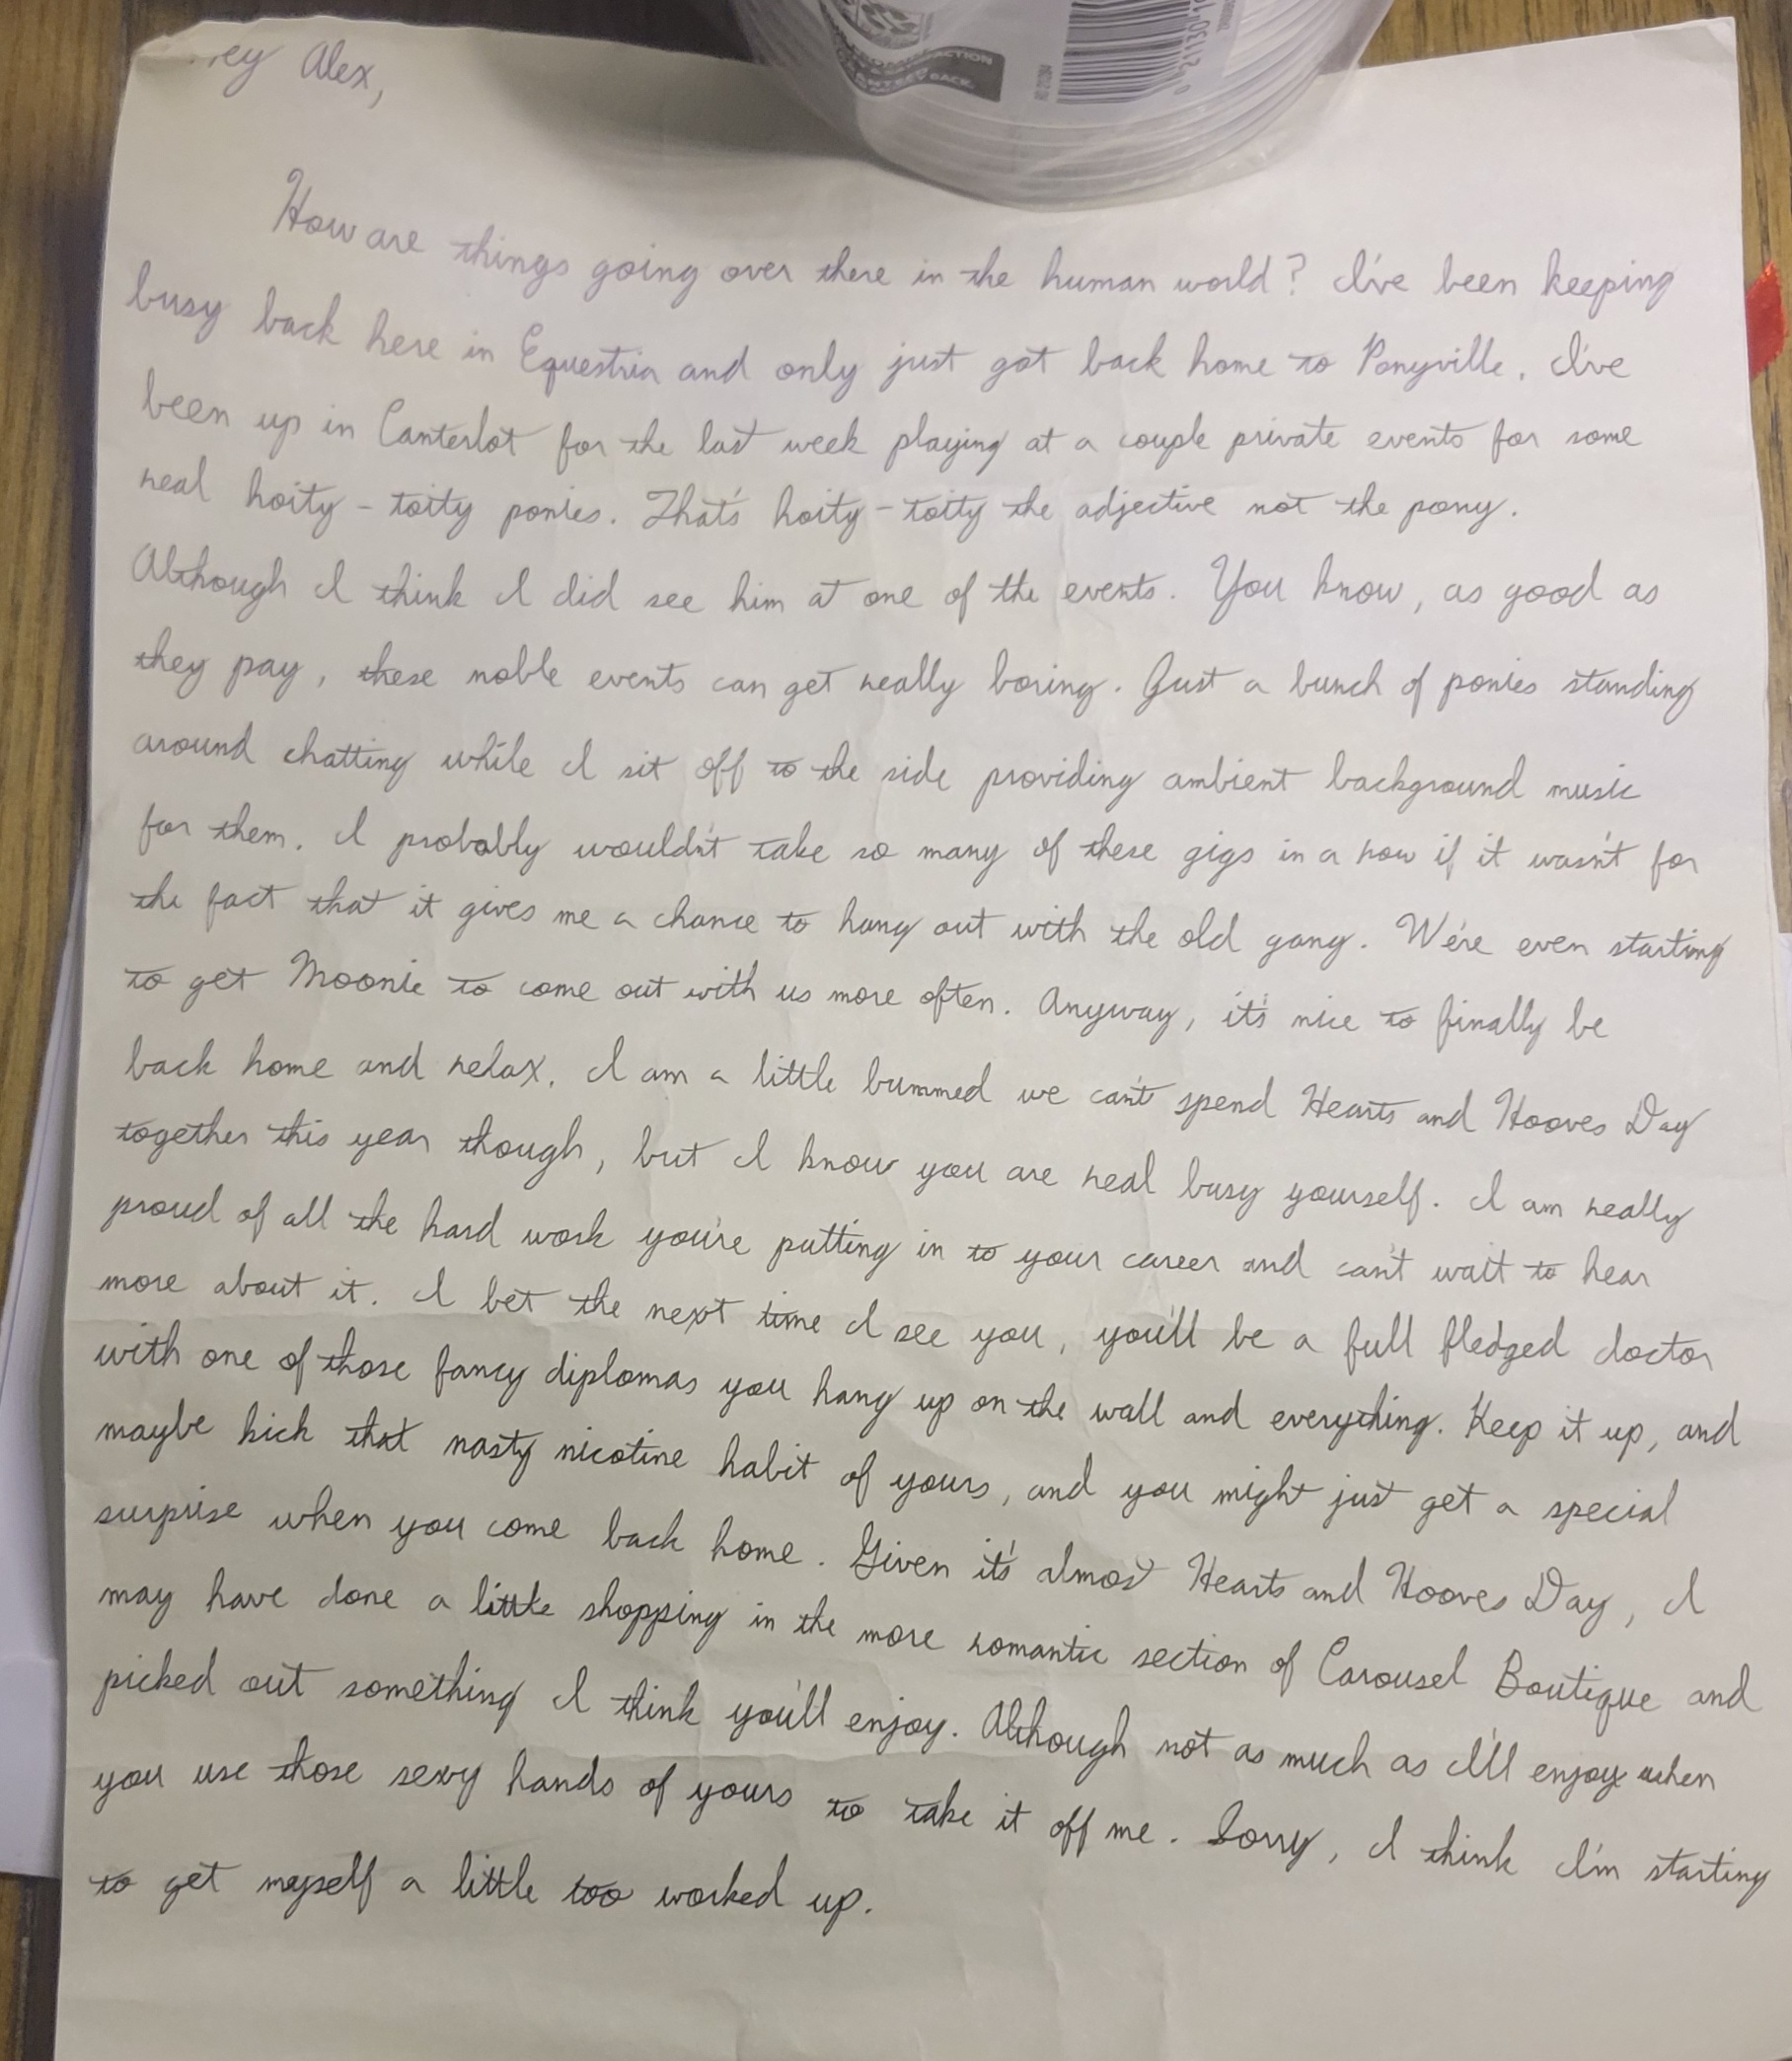 ey Alex,
How are things going over there in the human world? I've been keeping
busy back here in Equestria and only just got back home to Ponyville. I've
been up in Canterlot for the last week playing at a couple private events for some
real hoity-toity ponies. That's hoity-toity the adjective not the pony.
Although I think I did see him at one of the events. You know, as good as
they pay, these noble events can get really boring. Just a bunch of ponies standing
around chatting while I sit off to the side providing ambient background music
for them. I probably wouldn't take so many of these gigs in a row if it wasn't for
the fact that it gives me a chance to hang out with the old gang. We're even starting
to get Moonie to come out with us more often. Anyway, it's nice to finally be
back home and relax. I am a little bummed we can't spend Hearts and Hooves Day
together this year though, but I know you are real busy yourself. I am really
proud of all the hard work you're putting in to your career and can't wait to hear
more about it. I bet the next time I see you, you'll be a full fledged doctor
with one of those fancy diplomas you hang up on the wall and everything. Keep it up, and
maybe kick that nasty nicotine habit of yours, and you might just get a special
surprise when you come back home. Given it's almost Hearts and Hooves Day, I
may have done a little shopping in the more romantic section of Carousel Boutique and
picked out something I think you'll enjoy. Although not as much as I'll enjoy when
you use those sexy hands of yours to take it off me. Sorry, I think I'm starting
to get myself a little too worked up.